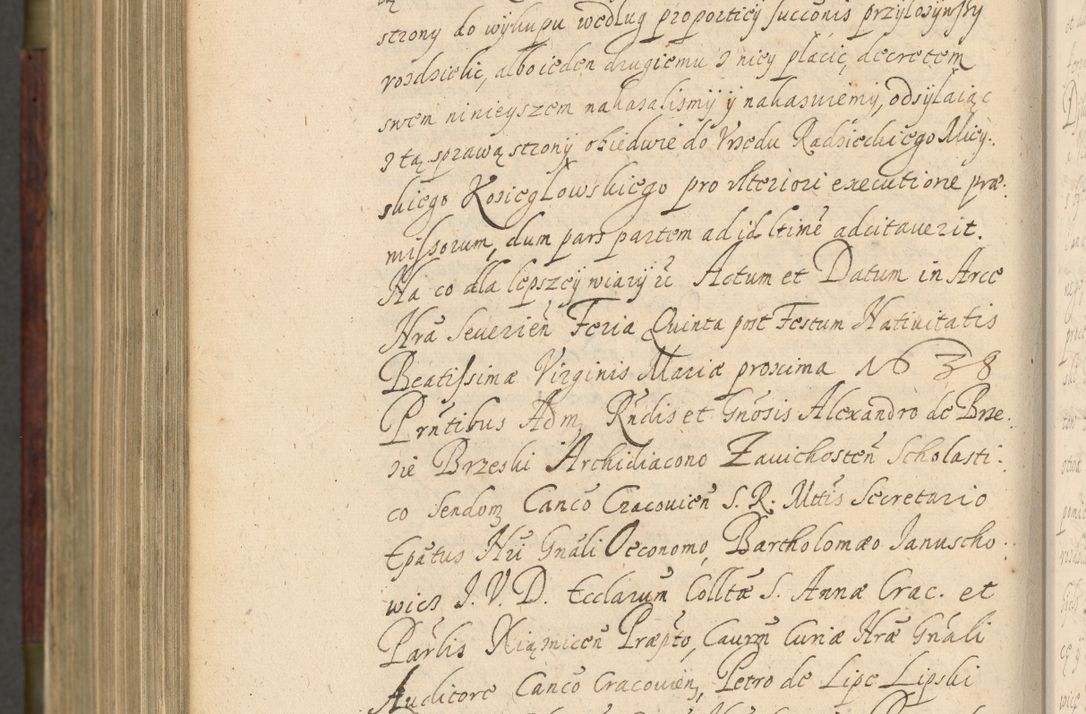 strony do wykupu według proporticij succonis przylosynssy
rozdzielic, albo ieden drugiemu z niey płacic, decretem
swem ninieyszem nakazalismij ÿ nakazuiemy, odsyłaiąc
z tą sprawą strony obiedwie do Vrzedu Radzieckiego Miey.
skiego Kozieglowskiego pro vlteriori executione præ.
missorum, dum pars partem ad id ltimē adcitauerit.
Na co dla lepszey wiary ẽc Actum et Datum in Arce
Nrã Seuerień Feria Quinta post Festum Natiuitatis
Beatissimæ Virginis Mariæ proxima 1638
Prñtibus Adm Rñdis et Gnōsis Alexandro de Brze.
zie Brzeski Archidiacono Zauichosteñ Scholasti.
co Sendom Cancō Cracouieñ S. R. Mttis Secretario
Epatus Nri Gnãli Oeconomo, Bartholomæo Januscho.
wicz J. V. D. Ecclarum Colltæ S. Annæ Crac. et
Parlis Xiąznicen̄ Præpto, Caurm Curiæ Nræ Gnãli
Auditore Cancō Cracouieñ, Petro de Lipe Lipski